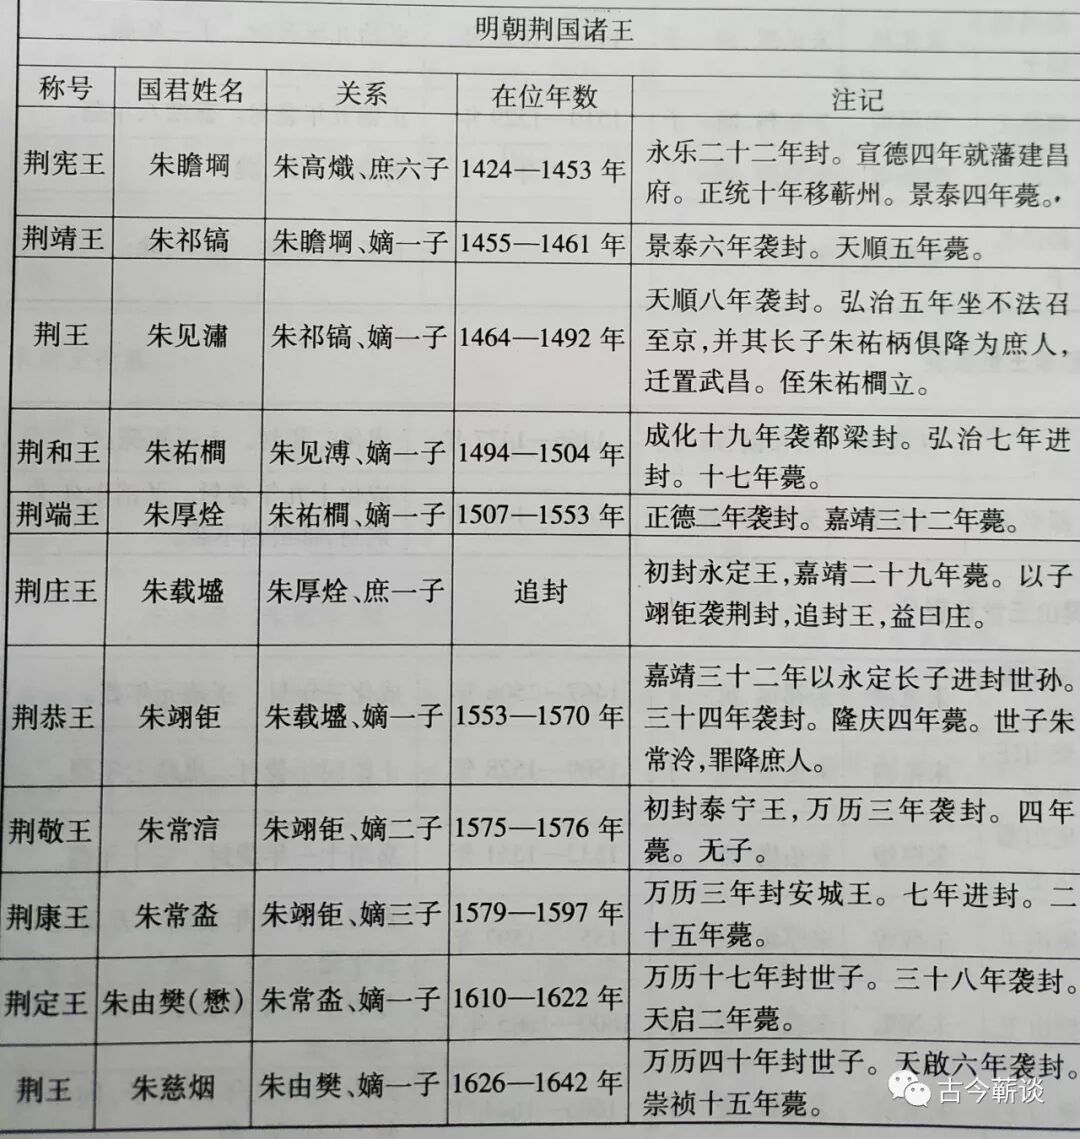 明朝荆国诸王
称号 国君姓名 关系 在位年数 注记
荆宪王 朱瞻堈 朱高熾、庶六子 1424—1453 年 永乐二十二年封。宣德四年就藩建昌
府。正统十年移蕲州。景泰四年薨。
荆靖王 朱祁镐 朱瞻堈、嫡一子 1455—1461 年 景泰六年袭封。天順五年薨。
荆王 朱见潚 朱祁镐、嫡一子 1464—1492 年 天順八年袭封。弘治五年坐不法召
至京,并其长子朱祐柄俱降为庶人,
迁置武昌。侄朱祐橺立。
荆和王 朱祐橺 朱见溥、嫡一子 1494—1504 年 成化十九年袭都梁封。弘治七年进
封。十七年薨。
荆端王 朱厚烇 朱祐橺、嫡一子 1507—1553 年 正德二年袭封。嘉靖三十二年薨。
荆庄王 朱载墭 朱厚烇、庶一子 追封 初封永定王,嘉靖二十九年薨。以子
翊钜袭荆封,追封王,益曰庄。
荆恭王 朱翊钜 朱载墭、嫡一子 1553—1570 年 嘉靖三十二年以永定长子进封世孙。
三十四年袭封。隆庆四年薨。世子朱
常泠,罪降庶人。
荆敬王 朱常㳦 朱翊钜、嫡二子 1575—1576 年 初封泰宁王,万历三年袭封。四年
薨。无子。
荆康王 朱常盗 朱翊钜、嫡三子 1579—1597 年 万历三年封安城王。七年进封。二
十五年薨。
荆定王 朱由樊(懋) 朱常盗、嫡一子 1610—1622 年 万历十七年封世子。三十八年袭封。
天启二年薨。
荆王 朱慈烟 朱由樊、嫡一子 1626—1642 年 万历四十年封世子。天啟六年袭封。
崇祯十五年薨。
古今蕲谈